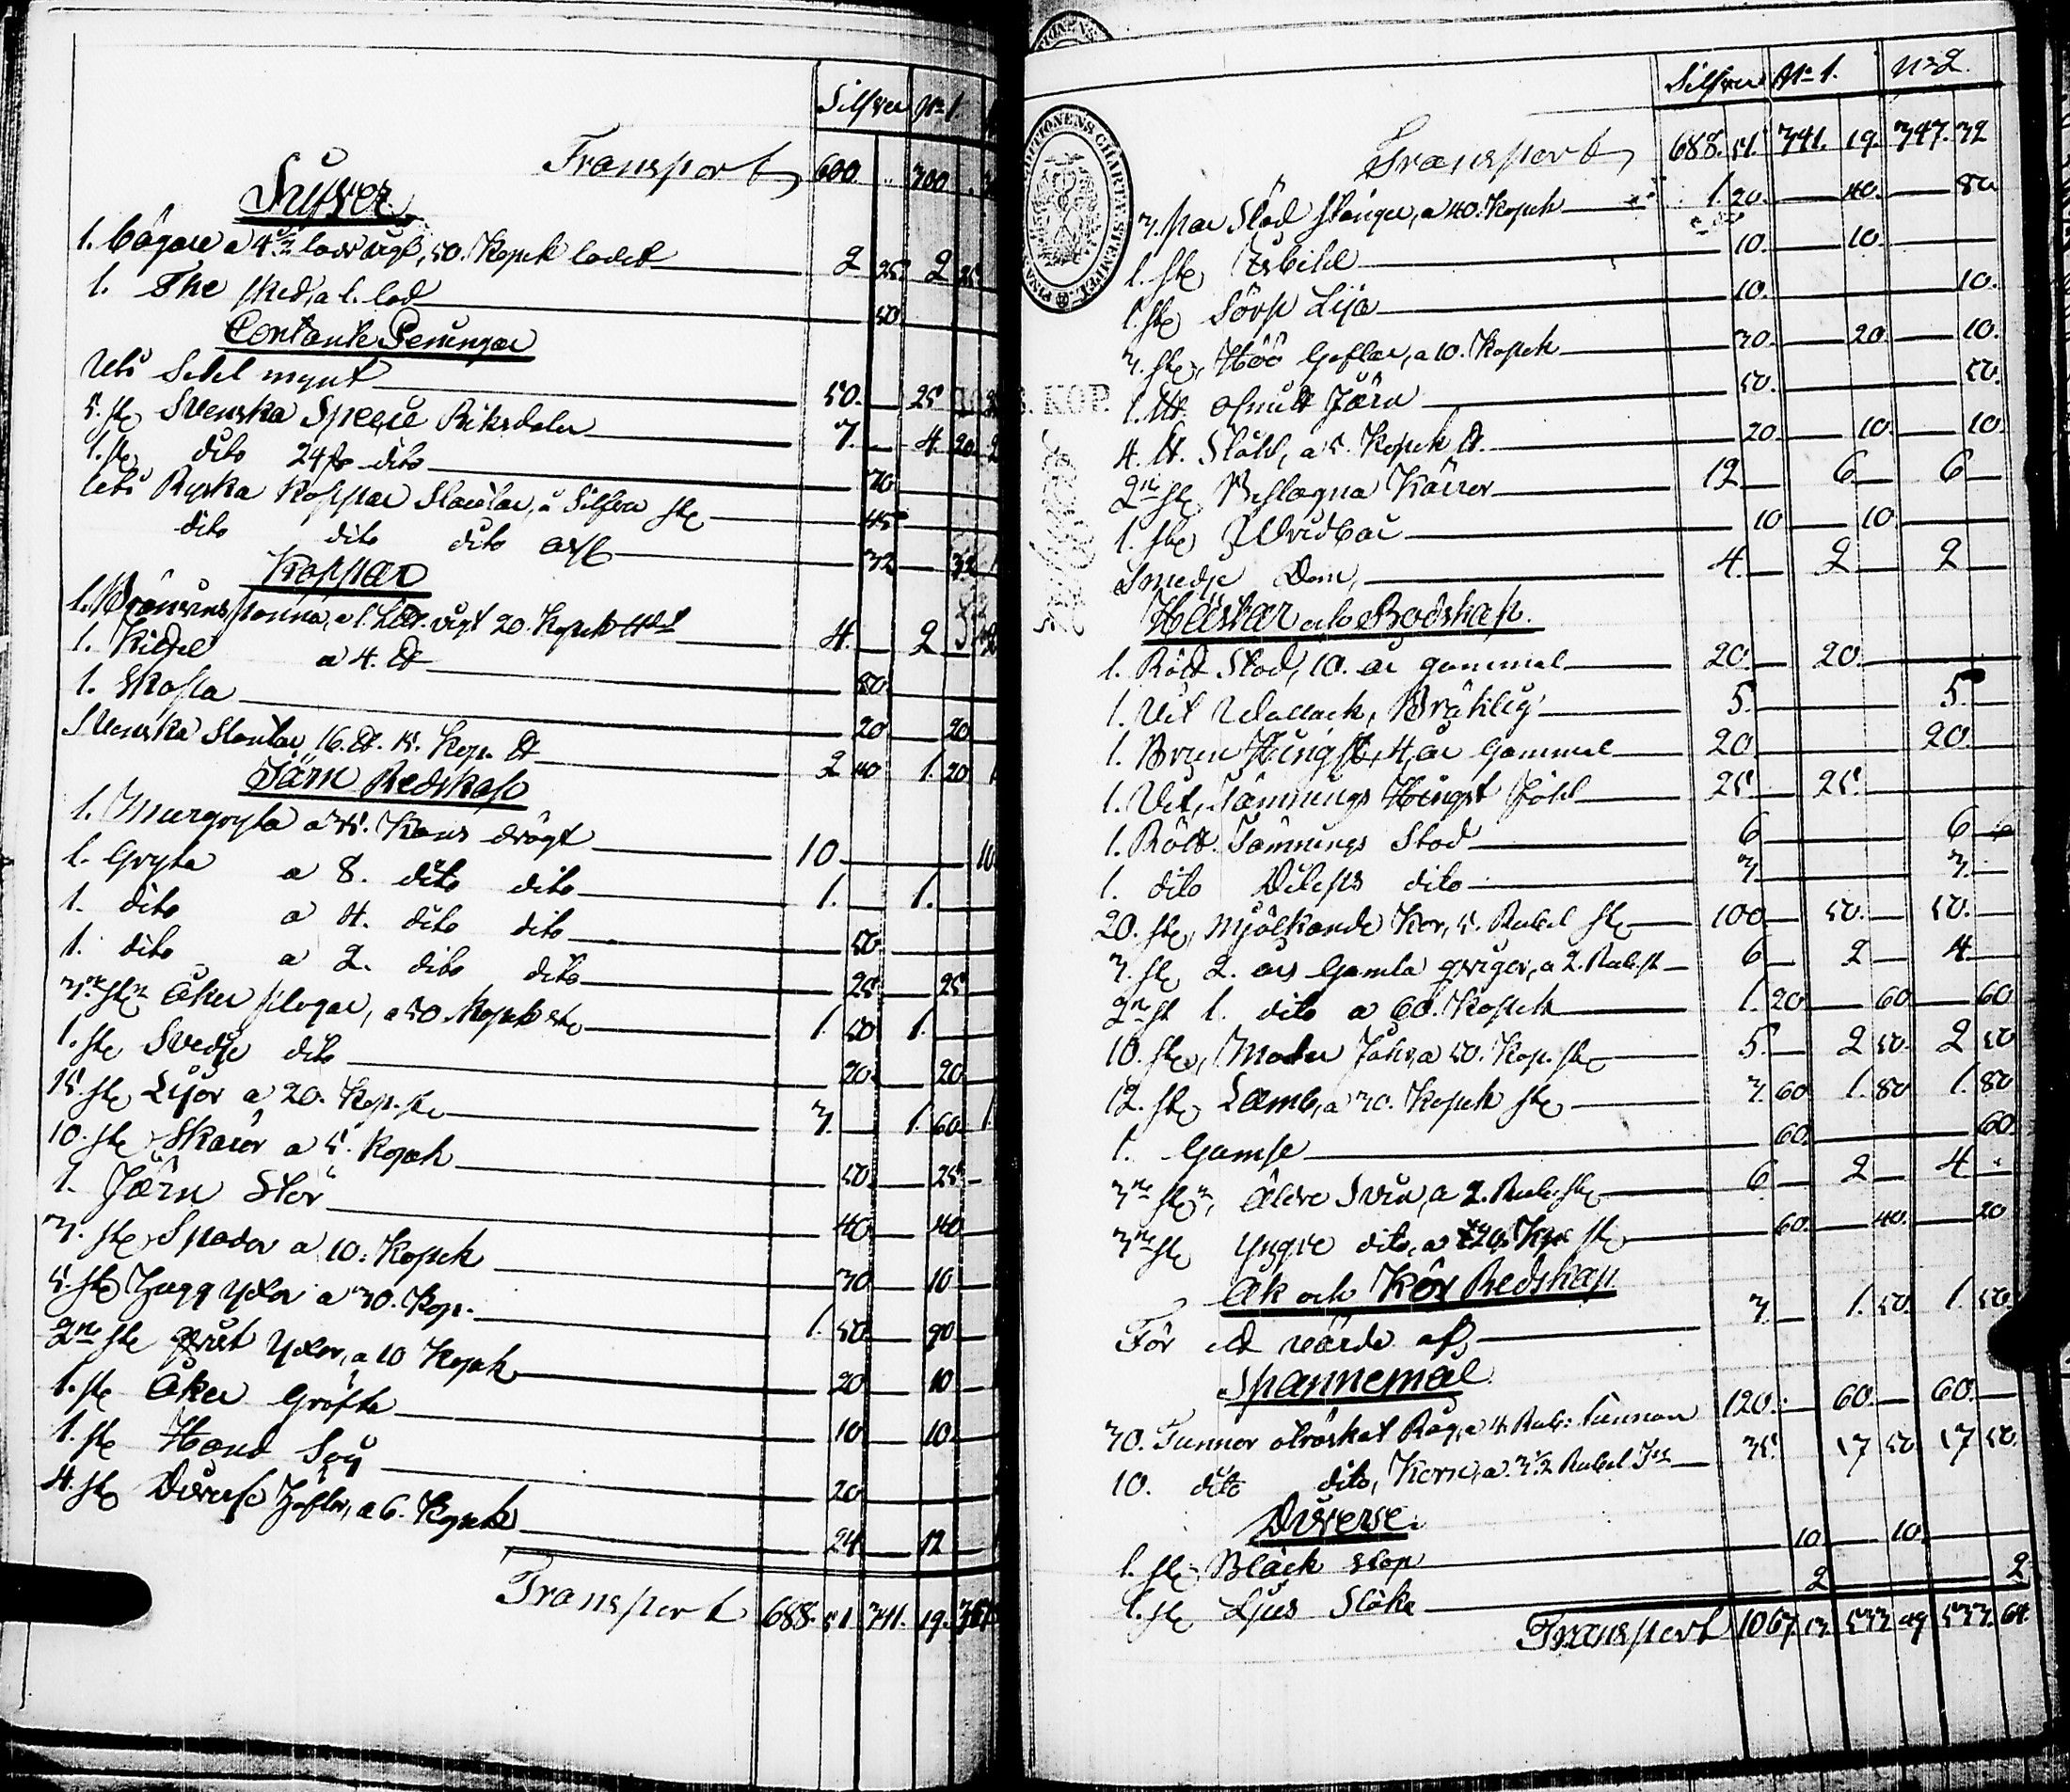 Silfver No 1.
Transport 600. .. 300 ..
Silfver
1. bägare a 4½ lods vigt, 50. Kopek lodet 2 25 2 25
1. The sked, a 1. lod 50
Contante Peningar
uti Sedel mynt 50. 25
5. st. Svenska Specie Riksdaler 7. 4. 20
1. st. dito 24 dito 70
uti Ryska Koppar Slantar, a Silfver 45
dito dito dito 32 32
Koppar
1. Brännvins panna, a 1. vigt 20. Kopek 4. 2
1. Kittel a 4. ℔ 80.
1. Skopa 20 20
Svenska Slantar, 16. ℔. 15. Kop. ℔ 2 40 1. 20
Järn Redskap
1. Murgryta a 35. Kans drägt 10 10
1. Gryta a 8. dito dito 1. 1.
1. dito a 4. dito dito 50.
1. dito a 2. dito dito 25 25
3ne st. Åker plogar, a 50 Kopek st. 1. 50 1.
1. st. Svedje dito 20. 20
15. st. Lijor a 20. Kop. st. 3. 1. 60 1.
10. st. Skäror a 5. Kopek 50. 25
1. Järn Stör 40 40
3. st. Spador a 10. Kopek 30 10
5. st. Hugg yxor a 30. Kop. 1. 50 90
2ne st. yxor, a 10 Kopek 20 10
1. st. Åker Gröfta 10 10
1. st. Hand Såg 20
4. st. Diverse Jeflor, a 6. Kopek 24 12
Transport 688. 51 341. 19.
Silfver No 1. No 2.
Transport 688. 51. 341. 19. 347. 32
3. par Släd stänger, a 40. Kopek 1. 20 40. 80
1. st. Isbihl 10. 10.
1. st. Sörp Lija 10. 10.
3. st. Höö Gaflar, a 10. Kopek 30. 20. 10.
1. osmidt Järn 50. 50.
4. ℔. Stål, a 5. Kopek ℔. 20 10. 10
2ne st. Beslagna Kärror 12 6 6
1. st. 10 10
Smedje Don, 4. 2 2
Hästar och Boskap.
1. Rödt Stod, 10. år gammal 20. 20.
1. Vit Wallack, Bräklig 5. 5.
1. Brun Hingst, 4, år Gammal 20 20
1. Vit, Tämnings Hingst Fåhl 25. 25.
1. Rödt Tämnings Stod 6 6
1. dito dito 3. 3.
20. st. Mjölkande Kor, 5. Rubel st. 100 50. 50.
3. st. 2. års Gamla qvigor, a 2. Rub. st. 6 2 4.
2ne st. 1. dito a 60. Kopek 1. 20 60 60
10. st. Moder Får, a 50. Kop. st. 5. 2 50. 2 50
12. st. Lamb, a 30. Kopek st. 3. 60 1. 80 1. 80
1. Gumse 60. 60.
3ne st. Äldre Svin, a 2. Rub. st. 6 2 4
3ne st. yngre dito, a 20. Kop st. 60. 40. 20
Åk och Kör Redskap
För ett värde af 3. 1. 50. 1. 50.
Spannemål
30. Tunnor otröskat Råg, a 4. Rub: tunnan 120. 60 60.
10. dito dito, Korn, a 3½ Rubel 35. 17 50 17 50.
Diverse
1. st. Bläck stop 10 10.
1. st. Ljus Stake 2 2
Transport 1067. 13. 533 49 533. 64.